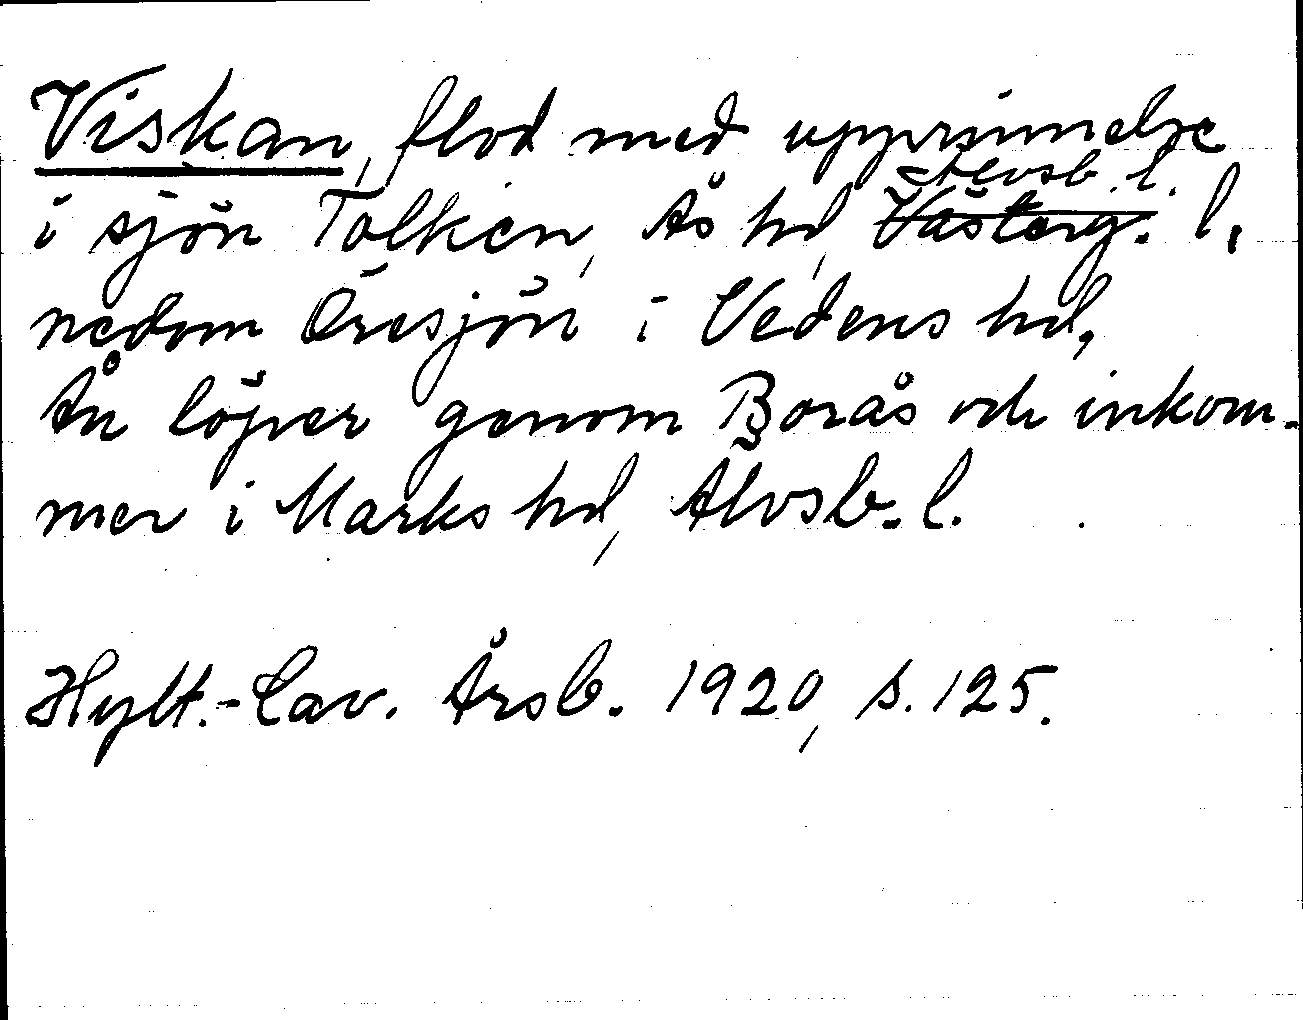 Viskan, flod med upprinnelse
i sjön Tolken, Ås hd, Västerg. Älvsb. l. l,
nedom Öresjön i Vedens hd,
Ån löper genom Borås och inkom-
mer i Marks hd, Älvsb. l.
Hylt.-Cav. Årsb. 1920, s. 125.